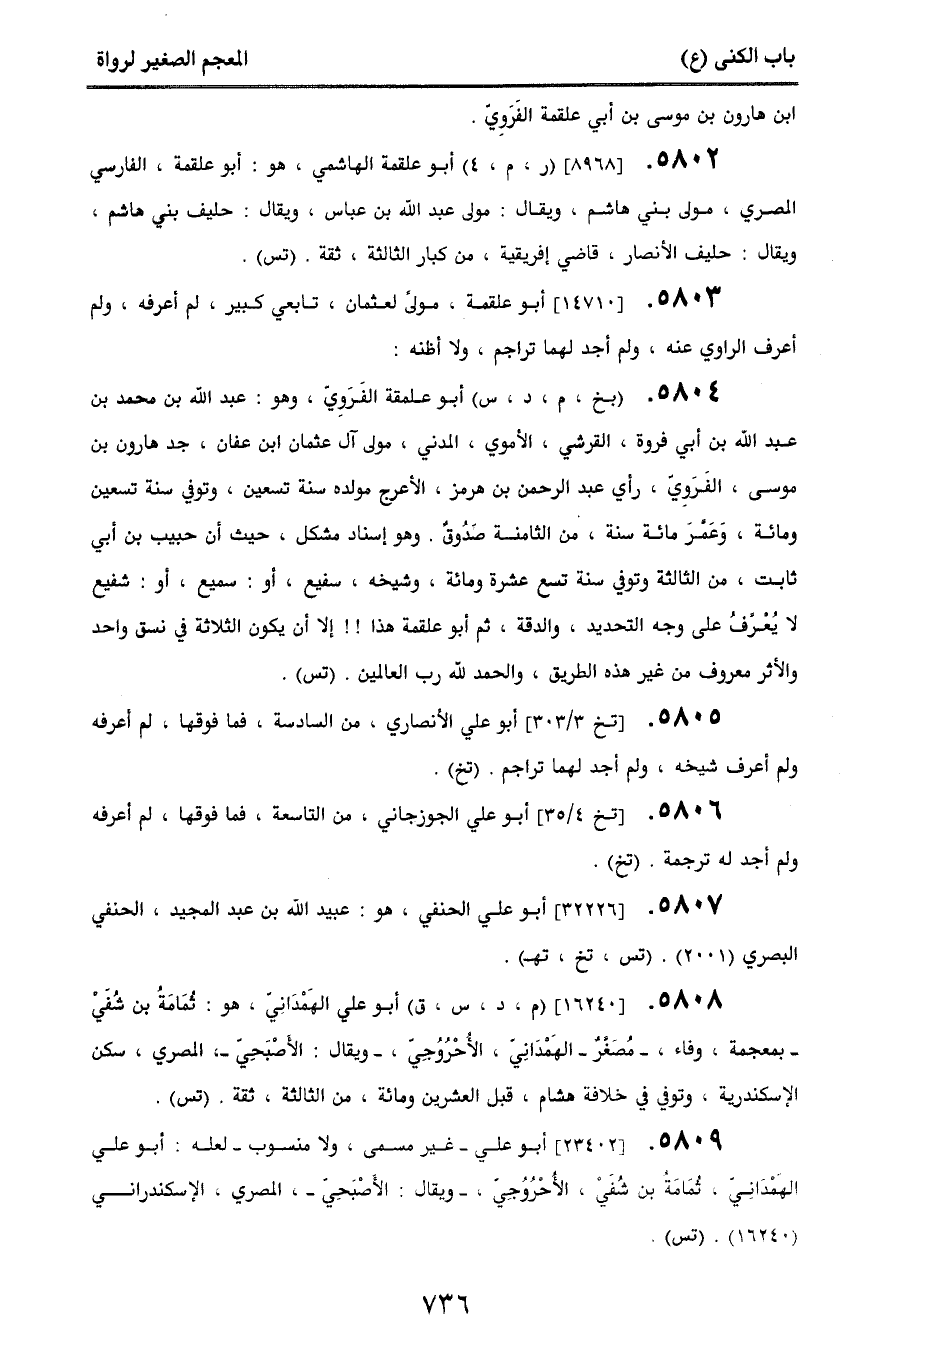 باب الكنى (ع)
المعجم الصغير لرواة
ابن هارون بن موسى بن أبي علقمة الفَرَوِيّ .
٥٨٠٢. [٨٩٦٨] (ر ، م ، ٤) أبو علقمة الهاشمي ، هو : أبو علقمة ، الفارسي
المصري ، مولى بني هاشم ، ويقال : مولى عبد الله بن عباس ، ويقال : حليف بني هاشم ،
ويقال : حليف الأنصار ، قاضي إفريقية ، من كبار الثالثة ، ثقة . (تس) .
٥٨٠٣. [١٤٧١٠] أبو علقمة ، مولىً لعثمان ، تابعي كبير ، لم أعرفه ، ولم
أعرف الراوي عنه ، ولم أجد لهما تراجم ، ولا أظنه :
٥٨٠٤. (بخ ، م ، د ، س) أبو علمقة الفَرَوِيّ ، وهو : عبد الله بن محمد بن
عبد الله بن أبي فروة ، القرشي ، الأموي ، المدني ، مولى آل عثمان ابن عفان ، جد هارون بن
موسى ، الفَرَوِيّ ، رأي عبد الرحمن بن هرمز ، الأعرج مولده سنة تسعين ، وتوفي سنة تسعين
ومائة ، وَعَمَّرَ مائة سنة ، من الثامنة صَدُوقٌ . وهو إسناد مشكل ، حيث أن حبيب بن أبي
ثابت ، من الثالثة وتوفي سنة تسع عشرة ومائة ، وشيخه ، سفيع ، أو : سميع ، أو : شفيع
لا يُعْرَّفُ على وجه التحديد ، والدقة ، ثم أبو علقمة هذا !! إلا أن يكون الثلاثة في نسق واحد
والأثر معروف من غير هذه الطريق ، والحمد لله رب العالمين . (تس) .
٥٨٠٥. [تخ ٣٠٣/٣] أبو علي الأنصاري ، من السادسة ، فما فوقها ، لم أعرفه
ولم أعرف شيخه ، ولم أجد لهما تراجم . (تخ) .
٥٨٠٦. [تخ ٣٥/٤] أبو علي الجوزجاني ، من التاسعة ، فما فوقها ، لم أعرفه
ولم أجد له ترجمة . (تخ) .
٥٨٠٧. [٣٢٢٢٦] أبو علي الحنفي ، هو : عبيد الله بن عبد المجيد ، الحنفي
البصري (٢٠٠١) . (تس ، تخ ، تهـ) .
٥٨٠٨. [١٦٢٤٠] (م ، د ، س ، ق) أبو علي الهَمْدَانِيّ ، هو : ثُمَامَةُ بن شُفَيْ
ـ بمعجمة ، وفاء ، ـ مُصَغَّرٌ ـ الهَمْدَانِيّ ، الأُحْرُوُجِيّ ، ـ ويقال : الأَصْبَحِيّ ـ، المصري ، سكن
الإسكندرية ، وتوفي في خلافة هشام ، قبل العشرين ومائة ، من الثالثة ، ثقة . (تس) .
٥٨٠٩. [٢٣٤٠٢] أبو علي ـ غير مسمى ، ولا منسوب ـ لعله : أبو علي
الهَمْدَانِيّ ، ثُمَامَةُ بن شُفَيْ ، الأُحْرُوُجِيّ ، ـ ويقال : الأَصْبَحِيّ ـ ، المصري ، الإسكندراني
(١٦٢٤٠) . (تس) .
٧٣٦